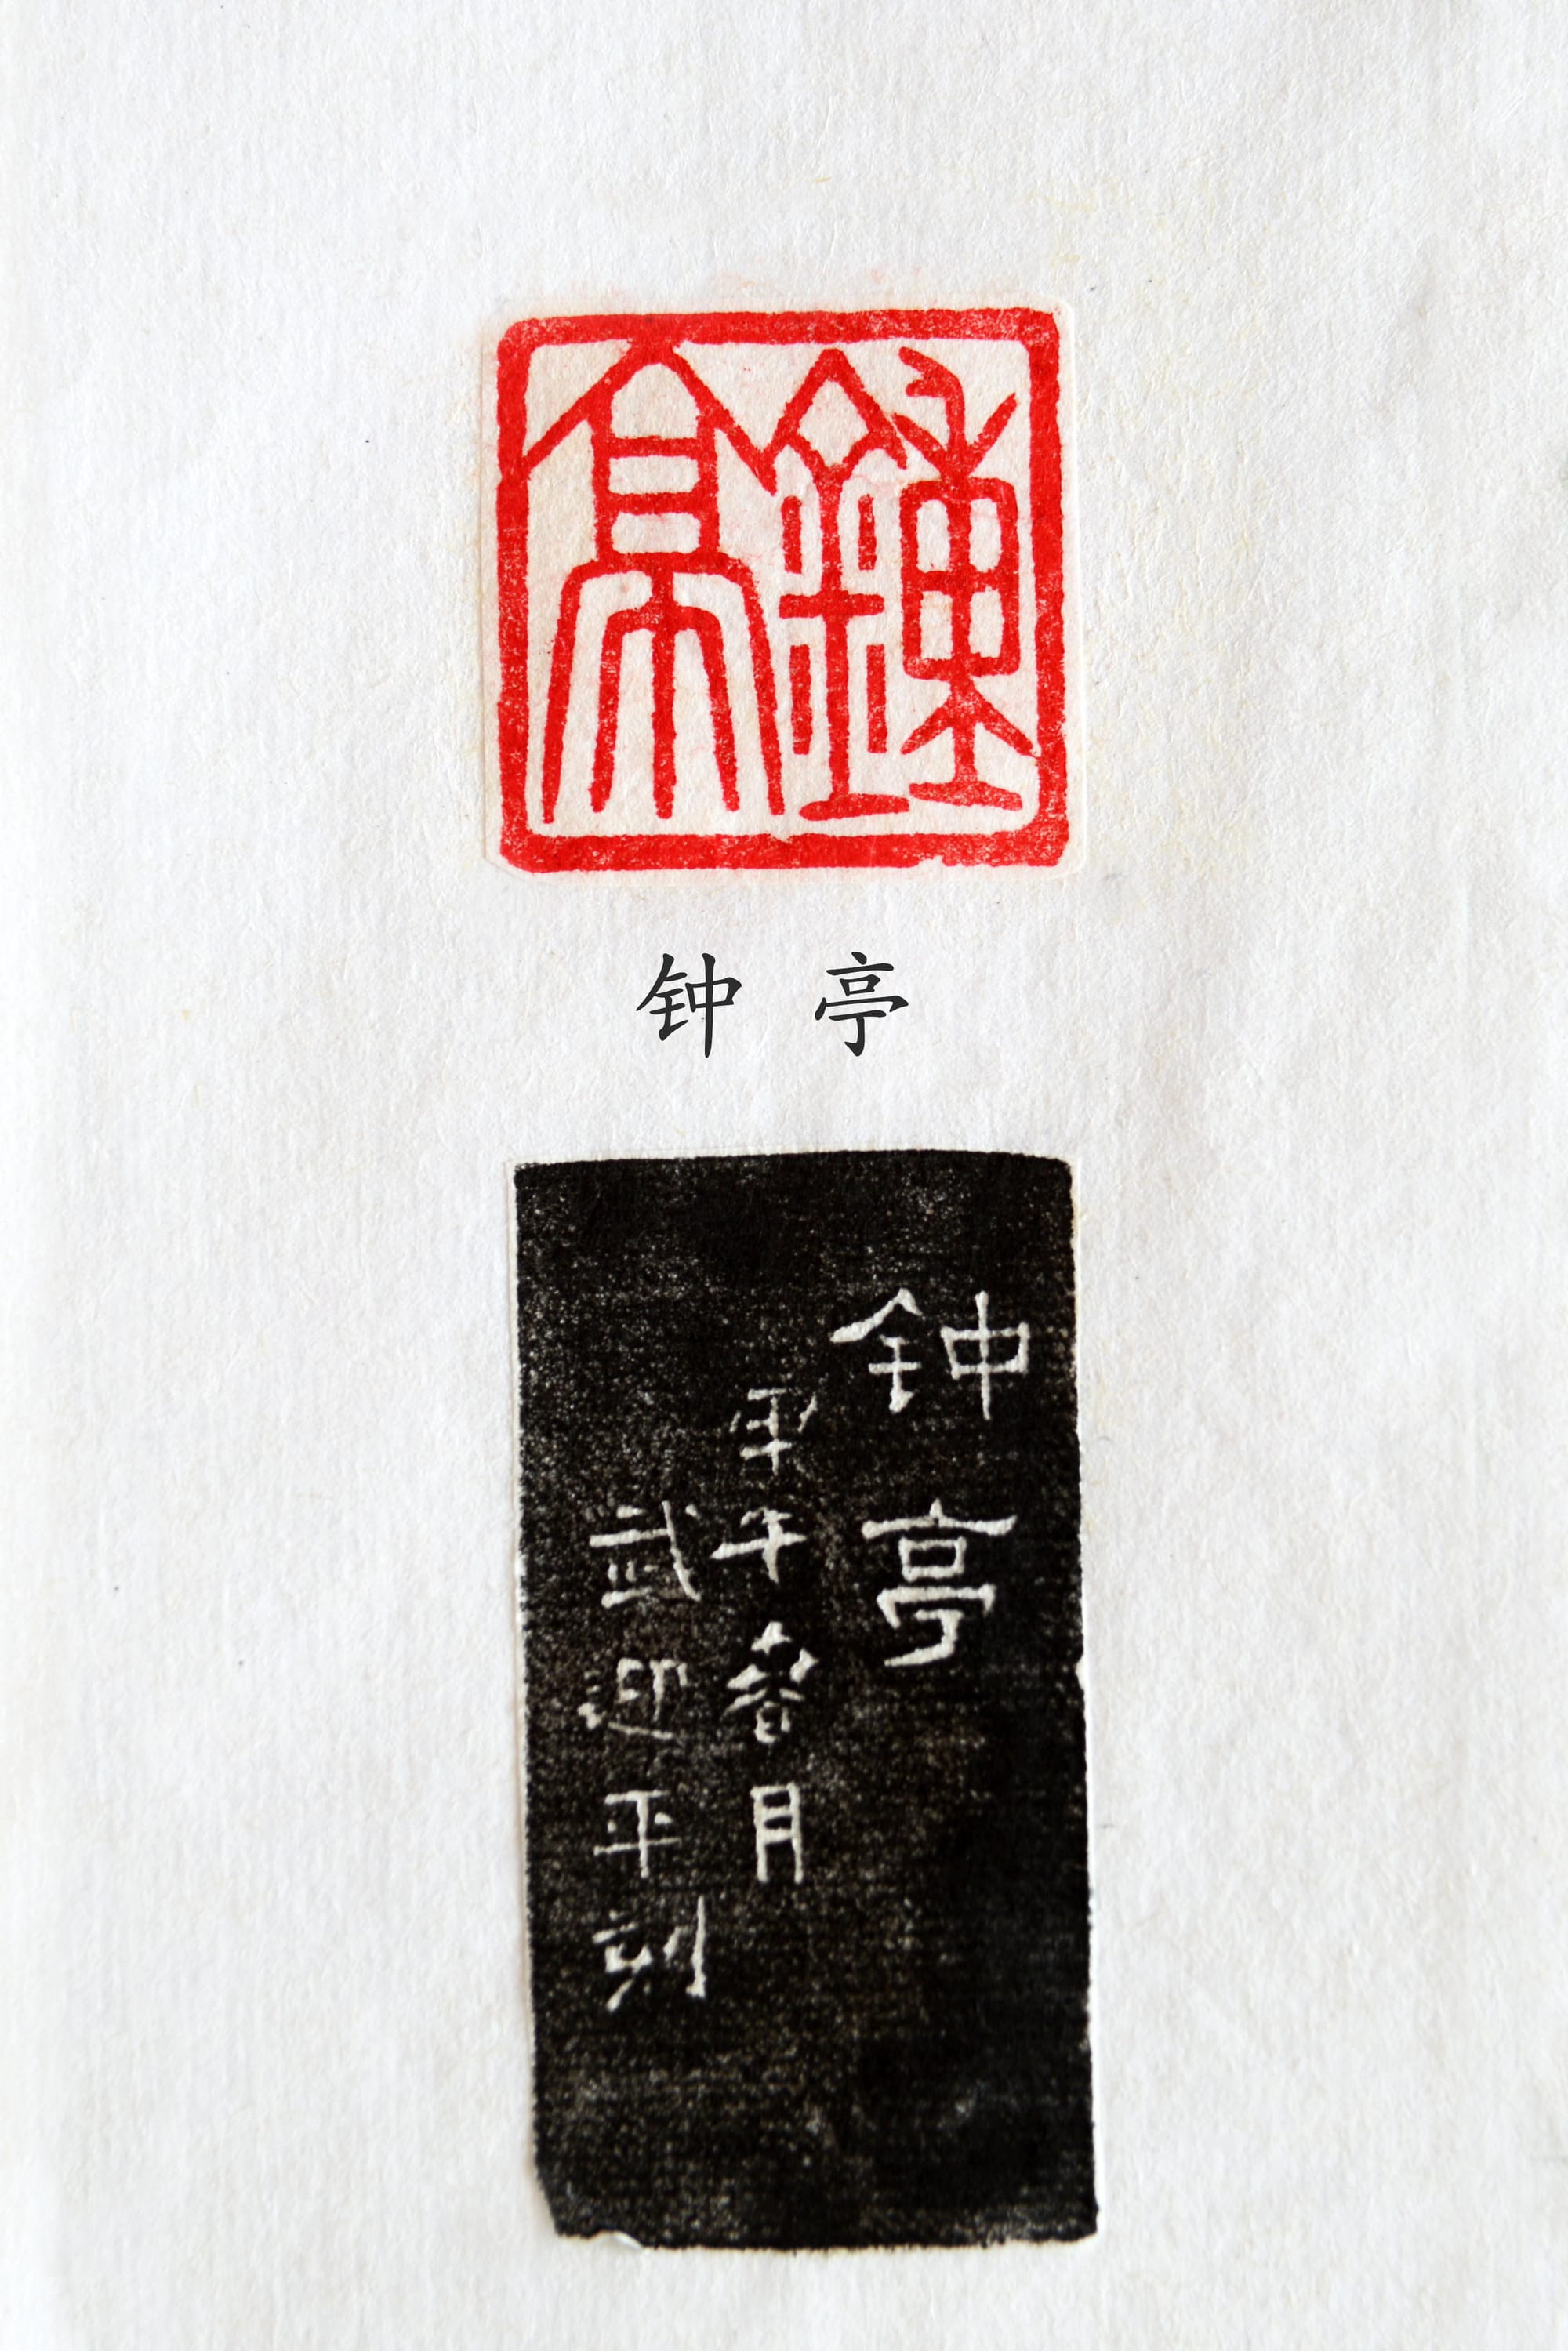 鍾亭
钟 亭
钟亭
午春月
武迎平刻